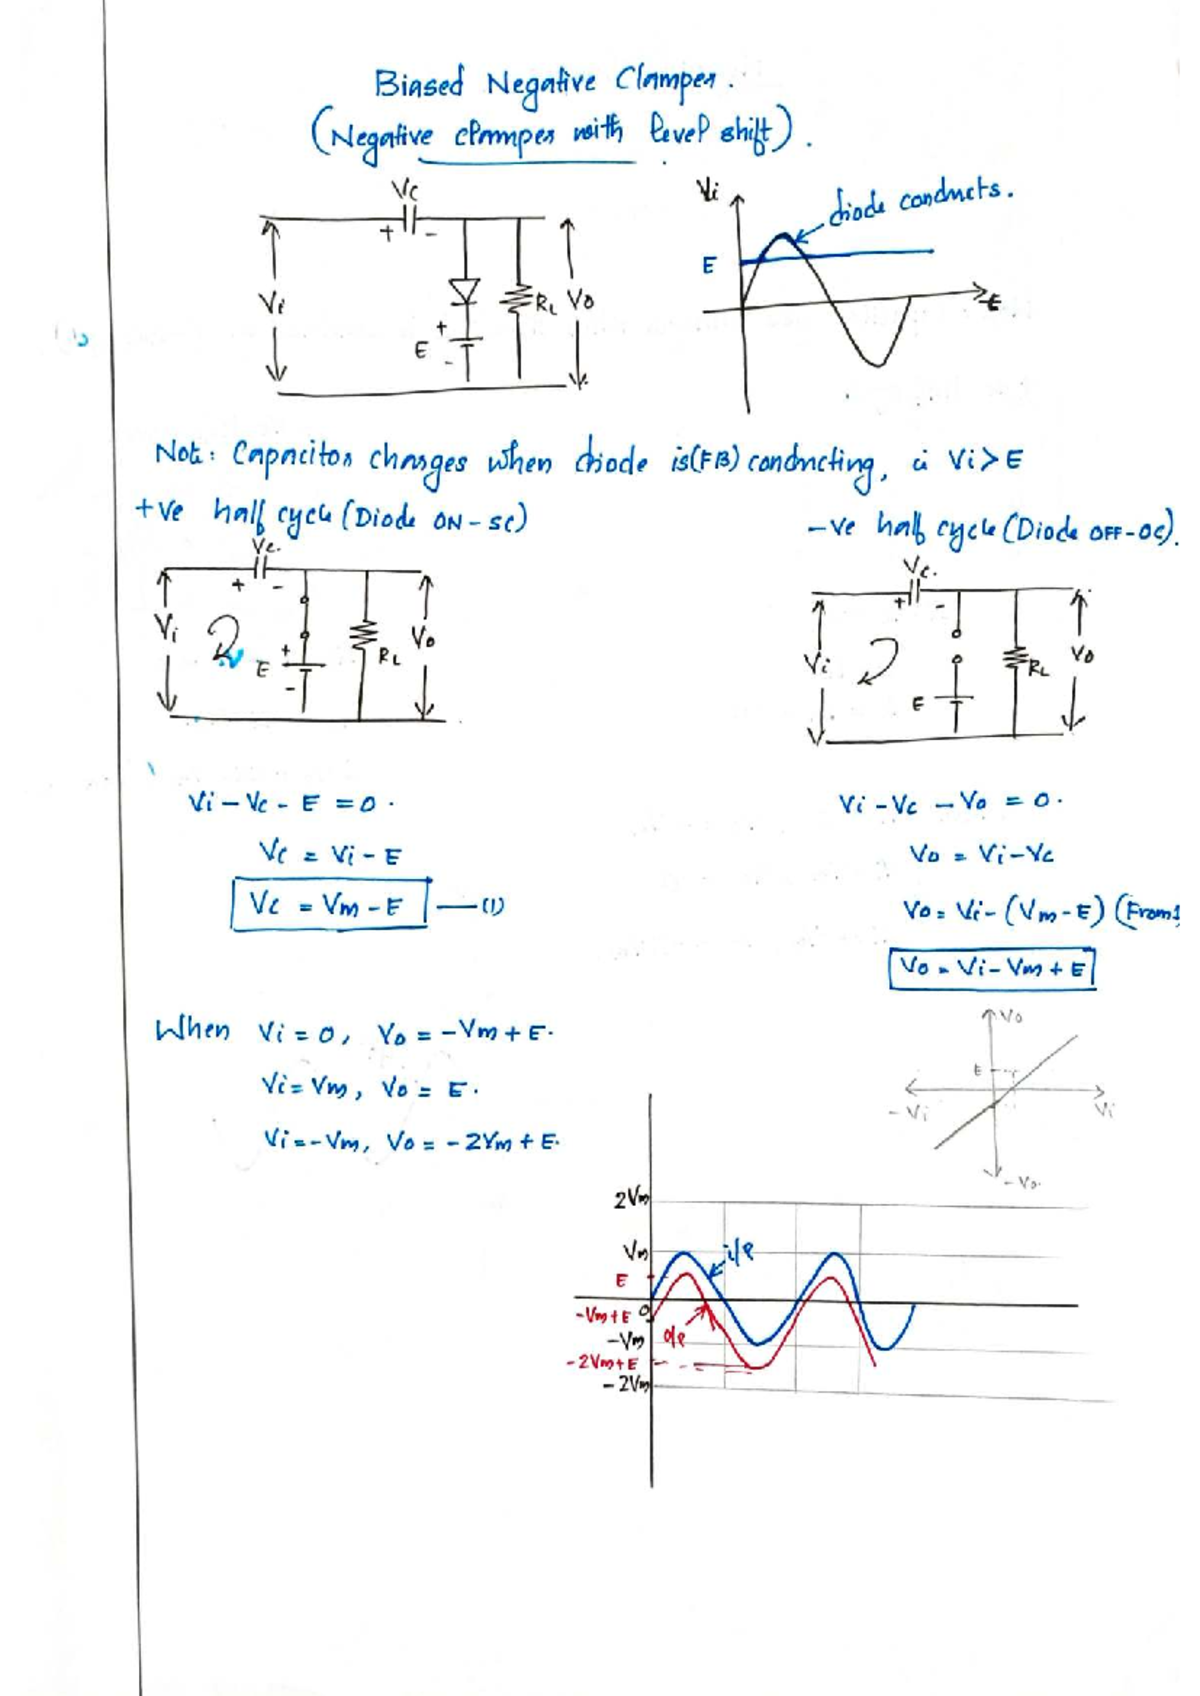 Biased Negative Clamper.
(Negative clamper with level shift).
Vc
+ -
Vi
+
E
-
RL Vo
Vi
diode conducts.
E
t
Note: Capacitor charges when diode is (FB) conducting, ie Vi > E
+ve half cycle (Diode ON - SC)
Vc.
+ -
Vi
+
E
-
RL
Vo
-ve half cycle (Diode OFF - OC).
Vc.
+ -
Vi
E
RL
Vo
Vi - Vc - E = 0.
Vc = Vi - E
Vc = Vm - E —(1)
Vi - Vc - Vo = 0.
Vo = Vi - Vc
Vo = Vi - (Vm - E) (From 1
Vo = Vi - Vm + E
When Vi = 0, Vo = -Vm + E.
Vi = Vm, Vo = E.
Vi = -Vm, Vo = -2Vm + E.
Vo
E
-Vi
Vi
-Vo.
2Vm
Vm
i/p
E
-Vm+E 0
-Vm o/p
-2Vm+E
-2Vm